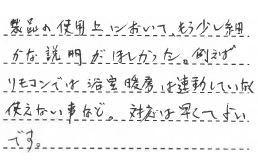 製品の使用上において、もう少し細
かな説明がほしかった。例えば
リモコンでは浴室暖房は連動していなく
使えない事など。対応は早くてよい
です。